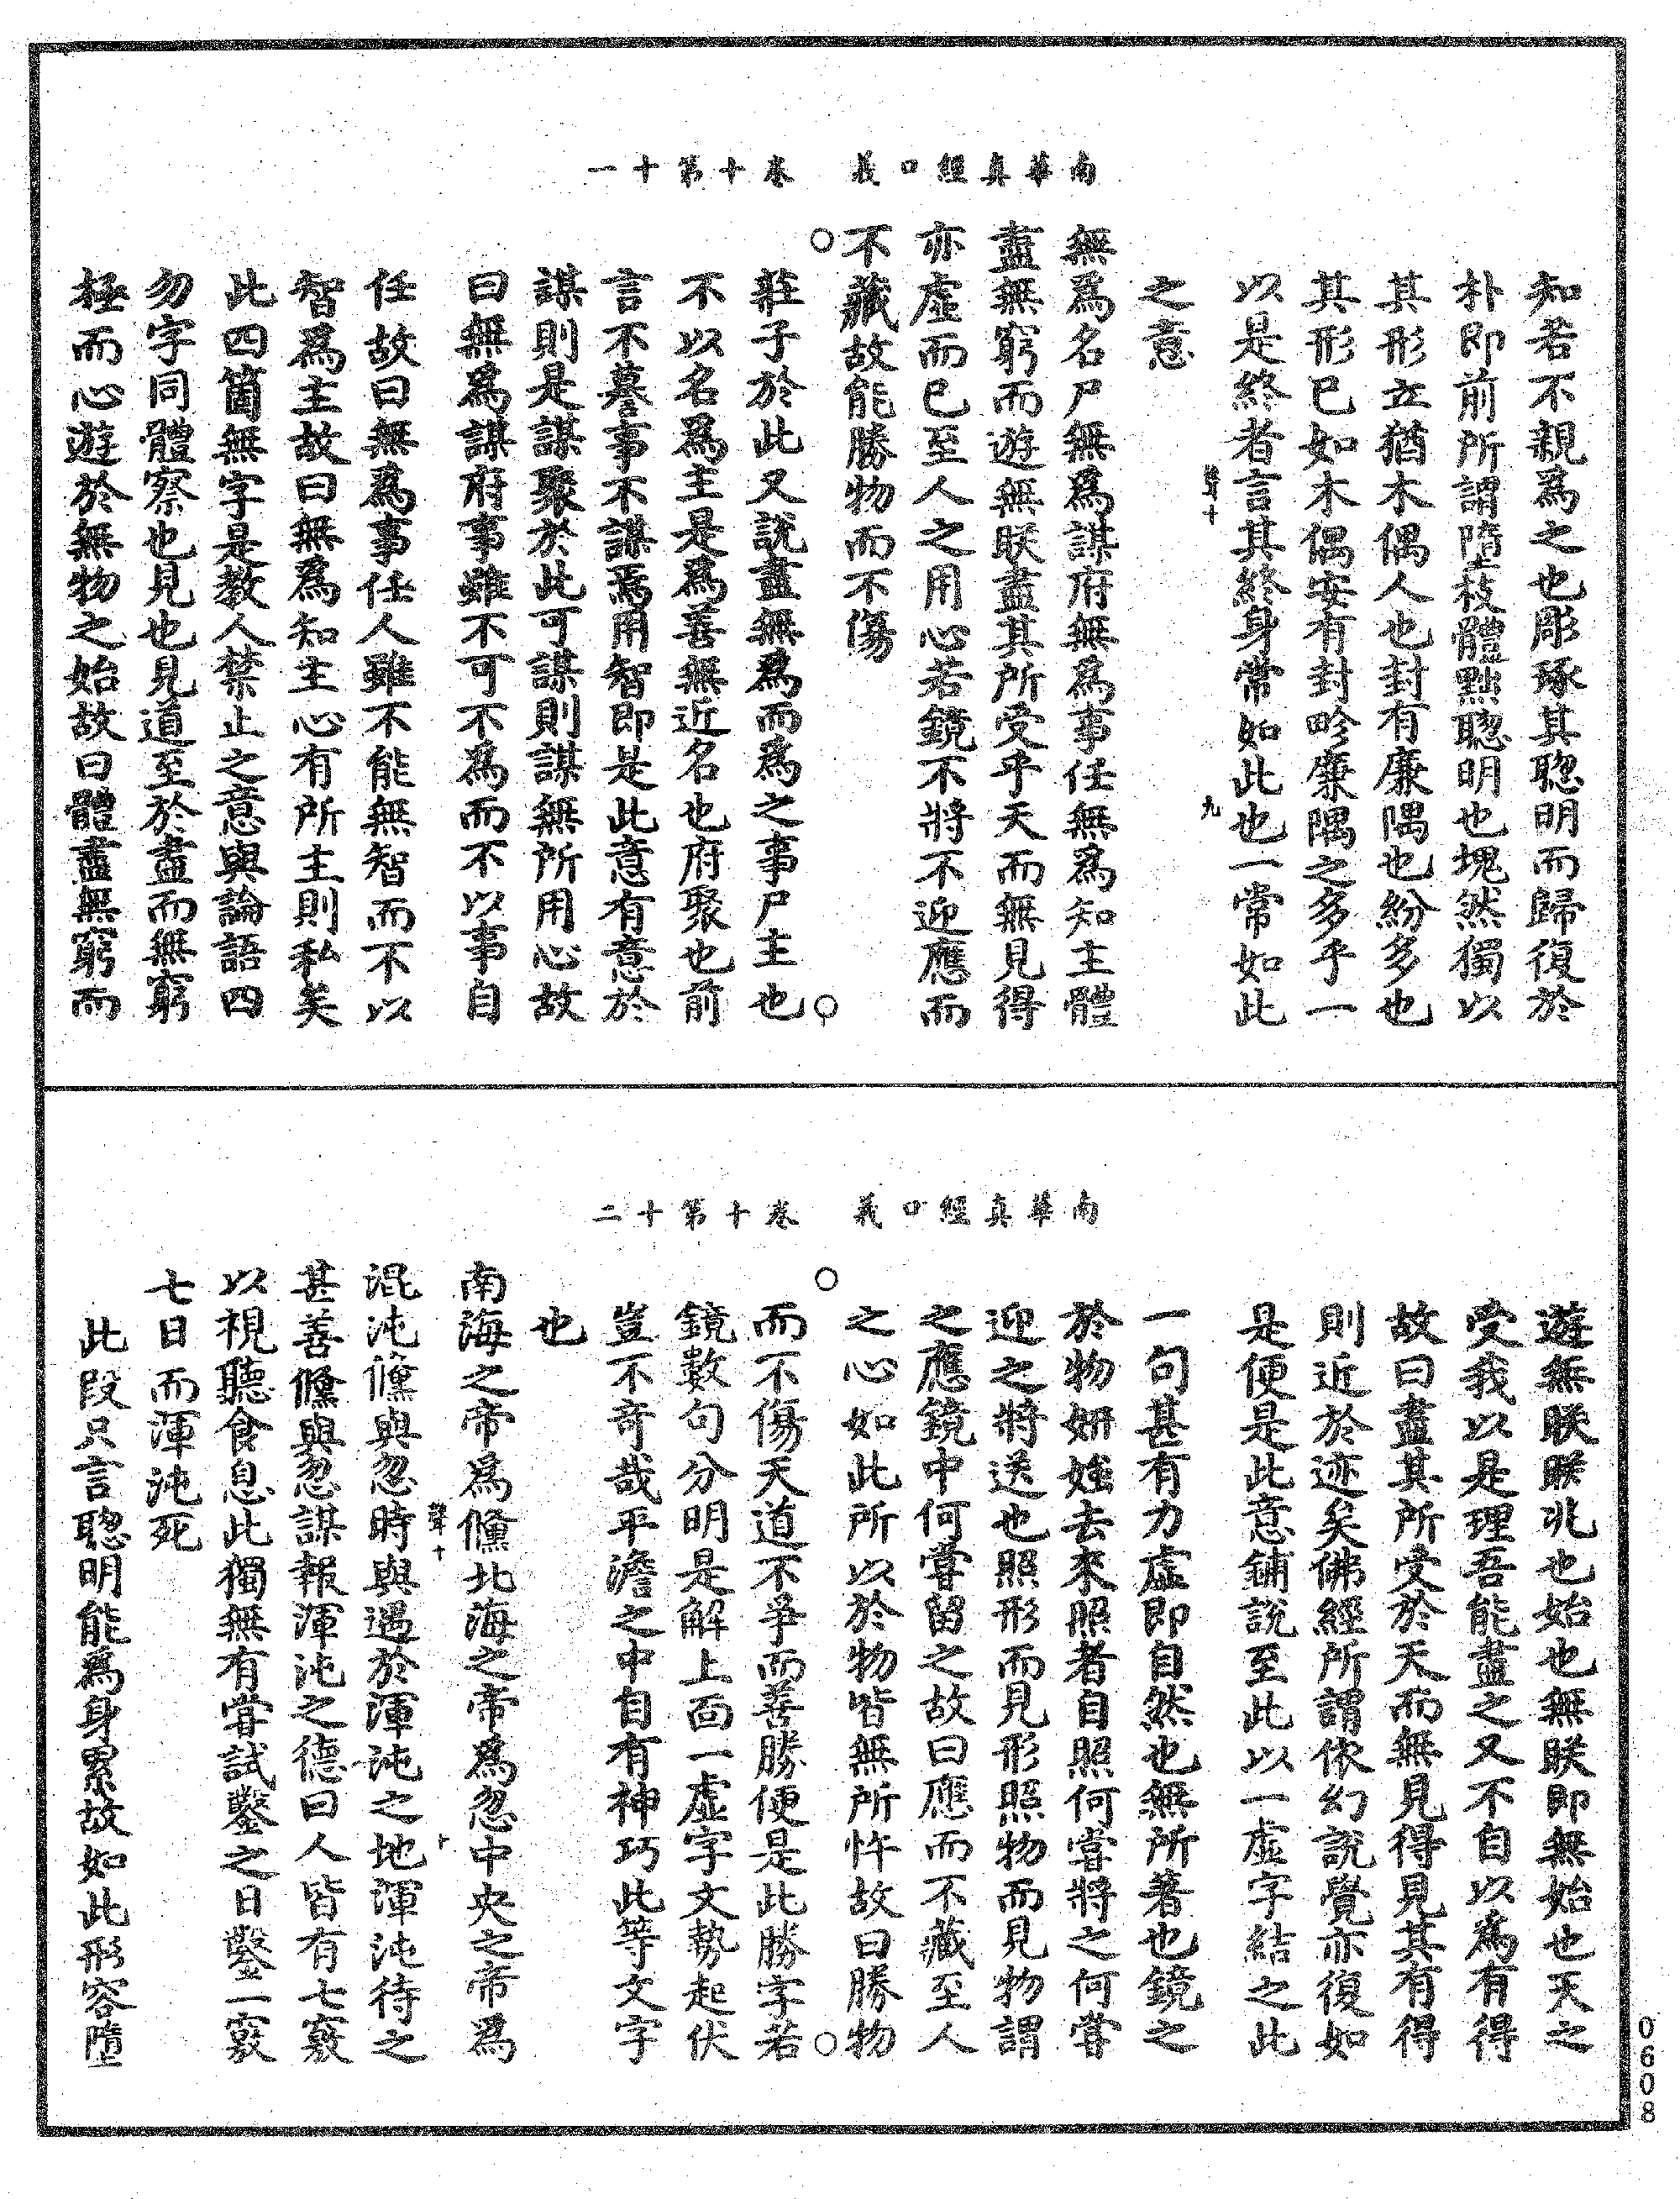 南華真經口義　卷十　第十一
知若不親爲之也彫琢其聰明而歸復於
朴即前所謂墮枝體黜聰明也塊然獨以
其形立猶木偶人也封有廉隅也紛多也
其形已如木偶安有封畛廉隅之多乎一
以是終者言其終身常如此也一常如此
聲十　九
之意
無爲名尸無爲謀府無爲事任無爲知主體
盡無窮而遊無朕盡其所受乎天而無見得
亦虛而已至人之用心若鏡不將不迎應而
不藏故能勝物而不傷
莊子於此又說盡無爲而爲之事尸主也
不以名爲主是爲善無近名也府聚也前
言不謩事不謀焉用智即是此意有意於
謀則是謀聚於此可謀則謀無所用心故
曰無爲謀府事雖不可不爲而不以事自
任故曰無爲事任人雖不能無智而不以
智爲主故曰無爲知主心有所主則私矣
此四箇無字是教人禁止之意與論語四
勿字同體察也見也見道至於盡而無窮
極而心遊於無物之始故曰體盡無窮而
南華真經口義　卷十　第十二
遊無朕朕兆也始也無朕即無始也天之
受我以是理吾能盡之又不自以爲有得
故曰盡其所受於天而無見得見其有得
則近於迹矣佛經所謂依幻說覺亦復如
是便是此意鋪說至此以一虛字結之此
一句甚有力虛即自然也無所著也鏡之
於物妍媸去來照者自照何嘗將之何嘗
迎之將送也照形而見形照物而見物謂
之應鏡中何嘗留之故曰應而不藏至人
之心如此所以於物皆無所忤故曰勝物
而不傷天道不爭而善勝便是此勝字若
鏡數句分明是解上面一虛字文勢起伏
豈不奇哉平澹之中自有神巧此等文字
也
南海之帝爲儵北海之帝爲忽中央之帝爲
聲十　十
混沌儵與忽時與遇於渾沌之地渾沌待之
甚善儵與忽謀報渾沌之德曰人皆有七竅
以視聽食息此獨無有嘗試鑿之日鑿一竅
七日而渾沌死
此段只言聰明能爲身累故如此形容墮
0608